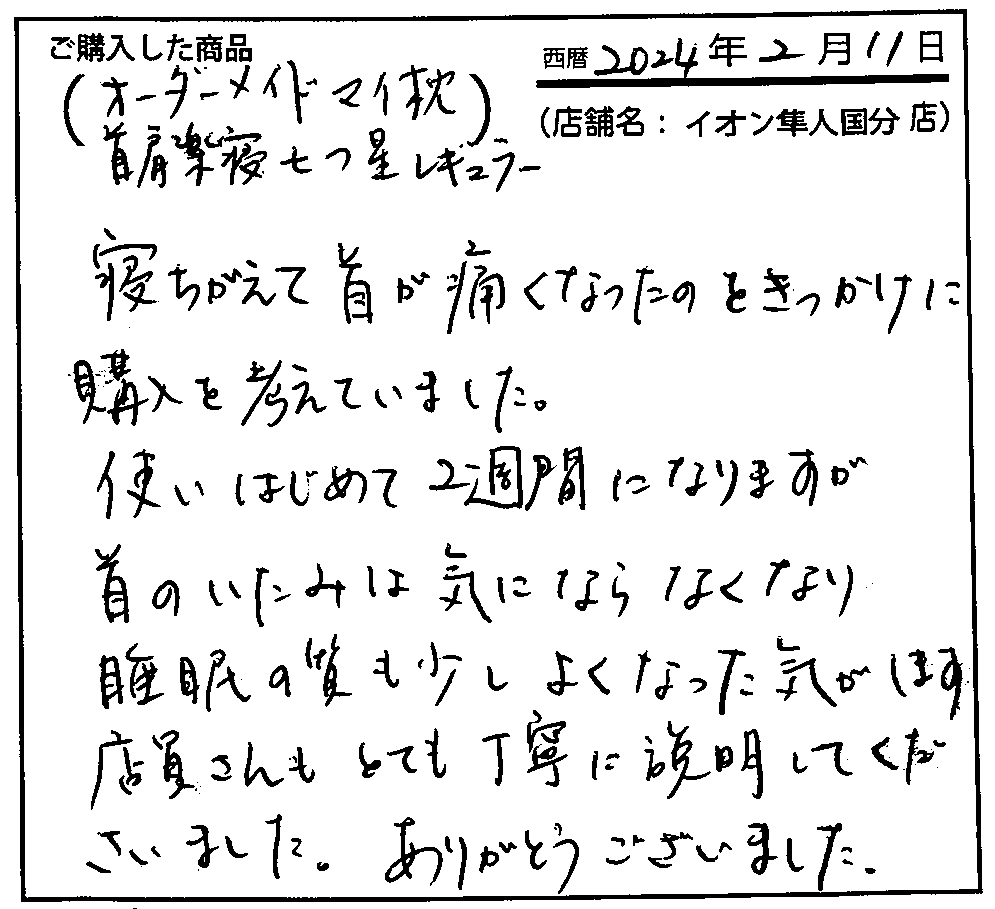 ご購入した商品
西暦 2024年2月11日
(オーダーメイドマイ枕)
(店舗名：イオン隼人国分店)
首肩楽寝七つ星レギュラー
寝ちがえて首が痛くなったのをきっかけに
購入を考えていました。
使いはじめて2週間になりますが
首のいたみは気にならなくなり
睡眠の質も少しよくなった気がします
店員さんもとても丁寧に説明してくだ
さいました。ありがとうございました.